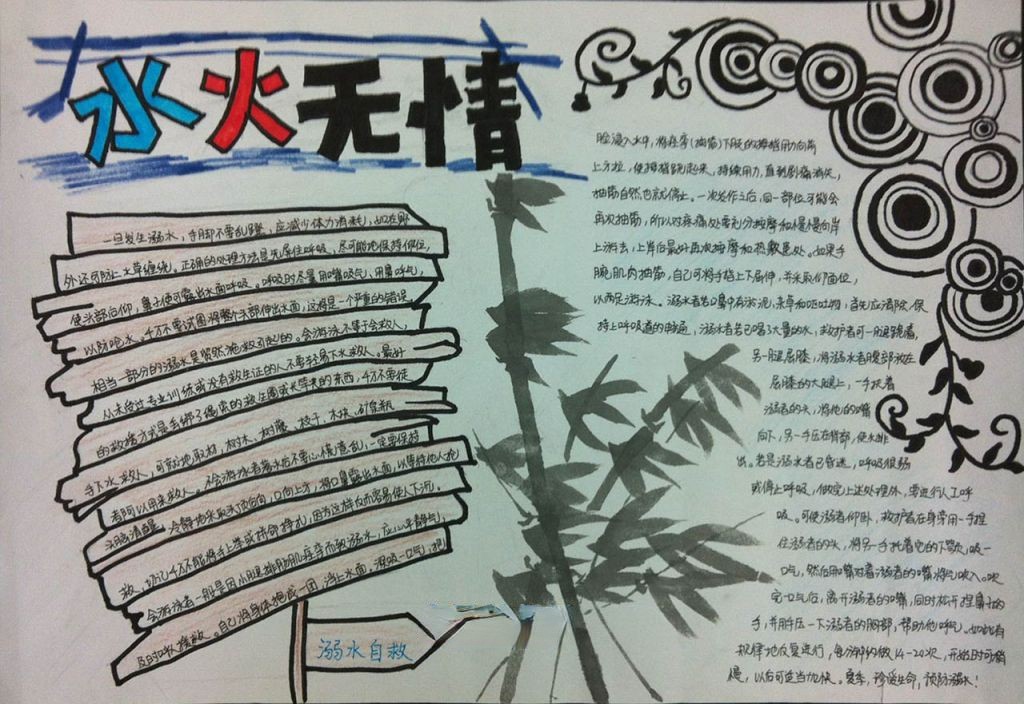 水火无情
一旦发生溺水，手脚不要乱蹬，应减少体力消耗，如在野
外还可防止水草缠绕。正确的处理方法是先屏住呼吸，尽可能地保持仰位，
使头部后仰，鼻子便可露出水面呼吸。呼吸时尽量用嘴吸气，用鼻呼气，
以防呛水。千万不要试图将整个头部伸出水面，这将是一个严重的错误
相当一部分的溺水是贸然施救引起的。会游泳不等于会救人，
从未经过专业训练或没有救生证的人不要轻易下水救人。最好
的救援方式是丢绑了绳索的救生圈或长竿类的东西，千万不要徒
手下水救人，可就地取材，树木、树藤、枝干、木块、矿泉瓶
者可以用来救人。不会游泳者落水后不要心慌意乱，一定要保持
头脑清醒。冷静地采取头顶向后，口向上方，将口鼻露出水面，以等待他人抢
救，切记千万不能将手上举或拼命挣扎，因为这样反而容易使人下沉。
会游泳者一般是因小腿腓肠肌痉挛而致溺水，应心平静气，
及时呼人援救。自己将身体抱成一团，浮上水面。深吸一口气，把
溺水自救
脸浸入水中，将痉挛(抽筋)下肢的拇指用力向前
上方拉，使拇指跷起来，持续用力，直到剧痛消失，
抽筋自然也就停止。一次发作之后，同一部位可能会
再次抽筋，所以对疼痛处要充分按摩和慢慢向岸
上游去，上岸后最好再次按摩和热敷患处。如果手
腕肌肉抽筋，自己可将手指上下屈伸，并采取仰面位，
以两足游泳。溺水者若口鼻中有淤泥、杂草和呕吐物，首先应清除，保
持上呼吸道的畅通，溺水者若已喝了大量的水，救护者可一腿跪着，
另一腿屈膝，将溺水者腹部放在
屈膝的大腿上，一手扶着
溺者的头，将他的嘴
向下，另一手压在背部，使水排
出。若是溺水者已昏迷，呼吸很弱
或停止呼吸，做完上述处理外，要进行人工呼
吸。可使溺者仰卧，救护者在身旁用一手捏
住溺者的头，将另一手托着他的下颚，吸一
口气，然后用嘴对着溺者的嘴将气吹入。吹
完一口气后，离开溺者的嘴，同时松开捏鼻子的
手，并用手压一下溺者的胸部，帮助他呼气。如此有
规律地反复进行，每分钟约做14-20次，开始时可稍
慢，以后可适当加快。夏季，珍爱生命，预防溺水！